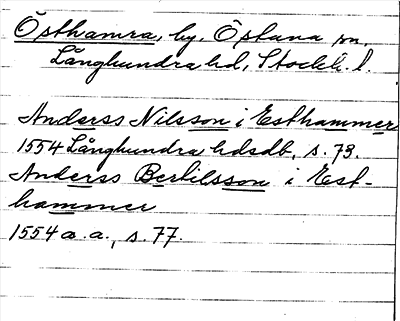 Östhamra, by, Östuna sn,
Långhundra hd, Stockh. l.
Anderss Nilsson i Esthammer
1554 Långhundra hdsdb, s. 73.
Anderss Bertilsson i Est-
hammer
1554 a.a., s. 77.